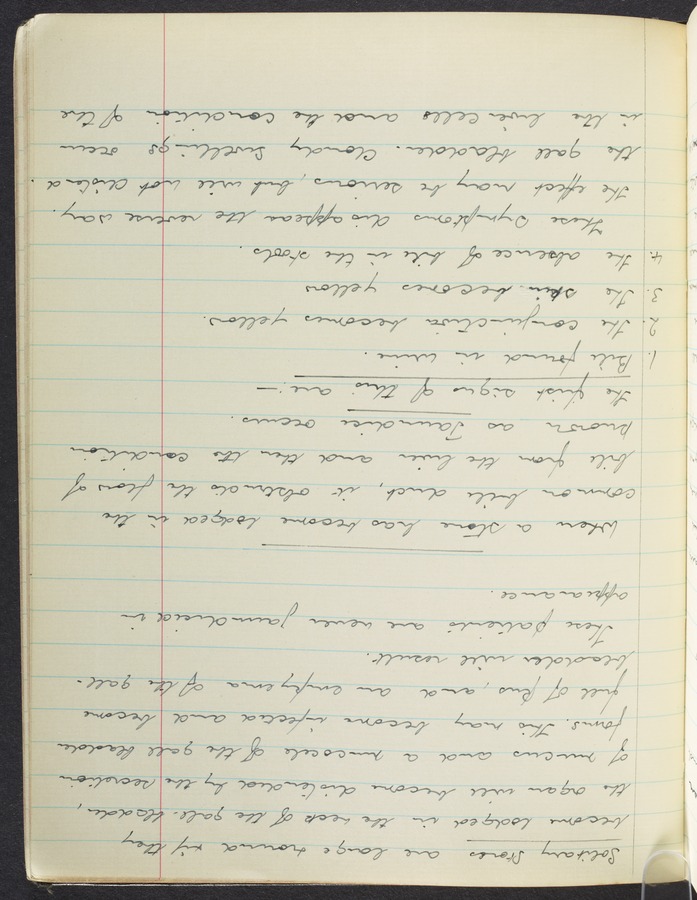 Solitary Stones are large & round & if they
become lodged in the neck of the gall bladder,
the organ will become distended by the secretion
of mucus and a mucocele of the gall bladder
forms. This may become infected and become
full of pus, and an empyema of the gall-
bladder will result.
These patients are never jaundiced in
appearance.
When a stone has become lodged in the
common bile duct, it obstructs the flow of
bile from the liver and then the condition
known as Jaundice occurs.
The first signs of this are:-
1. Bile found in urine.
2. The conjunctiva becomes yellow.
3. The skin becomes yellow
4. The absence of bile in the stools.
These symptoms disappear the reverse way.
The effect may be serious, but will not distend
the gall bladder. Cloudy swellings occur
in the liver cells and the condition of the